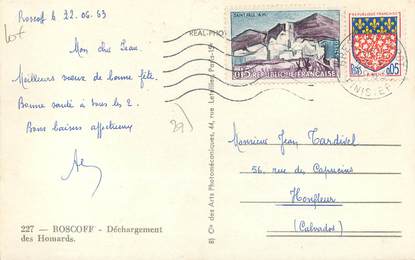 Roscoff le 22.06.63
Mon cher Jean.
Meilleurs vœux de bonne fête.
Bonne santé à tous les 2.
Bons baisers affectueux
227 — ROSCOFF - Déchargement
des Homards.
29)
REAL-PHOTO
8) Cie des Arts Photomécaniques, 44, rue Letellier, Paris-15e
SAINT-PAUL A.-M.
0,15 RÉPUBLIQUE FRANÇAISE
RÉPUBLIQUE FRANÇAISE
0,05
NIS-ER
Monsieur Jean Tardivel
56, rue des Capucins
Honfleur
(Calvados)